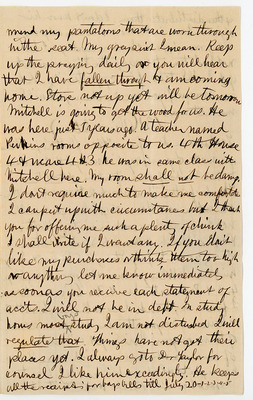 mend my pantaloons that are worn through
in the seat. My gray suit I mean. Keep
up the praying daily or you will hear
that I have fallen through & am coming
home. Stove not up yet will be tomorrow
Mitchell is going to get the wood for us. He
was here just 3 years ago. A teacher named
Perkins rooms opposite to us. 4th House
4 & we are 4 #3 he was in same class with
Mitchell here. My room shall not be dingy.
I don't require much to make me comfortable
I can put up with circumstances but I thank
you for offering me such a plenty of chink
I shall write if I want any. If you don't
like my purchases or think them too high
or anything let me know immediately
as soon as you receive each statement of
accts. I will not be in debt. In study
hours most study I am not disturbed I will
regulate that. Things have not got their
places yet. I always go to Dr Taylor for
counsel I like him exceedingly. He keeps
all the receipts for bags bills till July 20-1-2-3-4-5